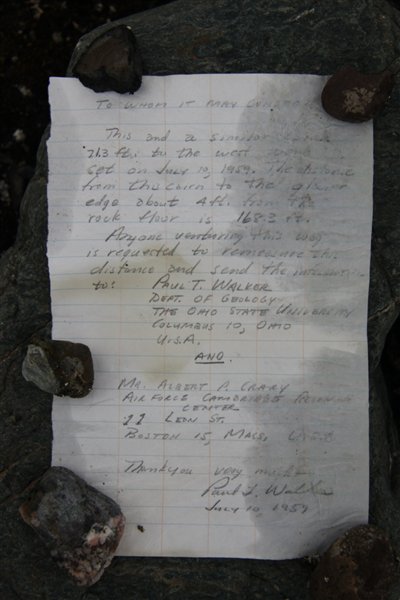 TO WHOM IT MAY CONCERN
This and a similar cairn
21.3 ft. to the west were
set on July 10, 1959. The distance
from this cairn to the glacier
edge about 4 ft. from the
rock floor is 168.3 ft.
Anyone venturing this way
is requested to remeasure this
distance and send the information
to: PAUL T. WALKER
DEPT. OF GEOLOGY
THE OHIO STATE UNIVERSITY
COLUMBUS 10, OHIO
U.S.A.
AND.
MR. ALBERT P. CRARY
AIR FORCE CAMBRIDGE RESEARCH
CENTER
11 LEON ST.
BOSTON 15, MASS, U.S.A
Thankyou very much
Paul T. Walker
July 10 1959